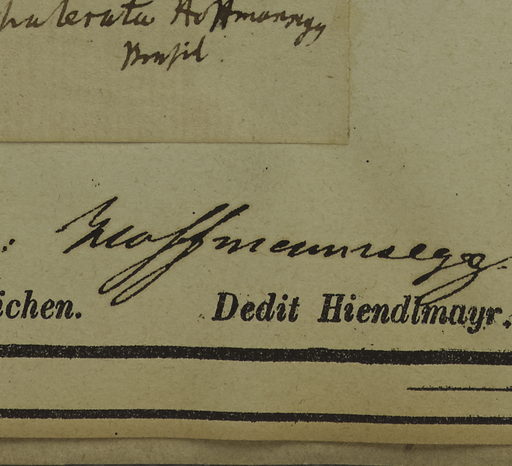 Hoffmannsegg
Brasil.
: Hoffmannsegg.
ichen. Dedit Hiendlmayr.